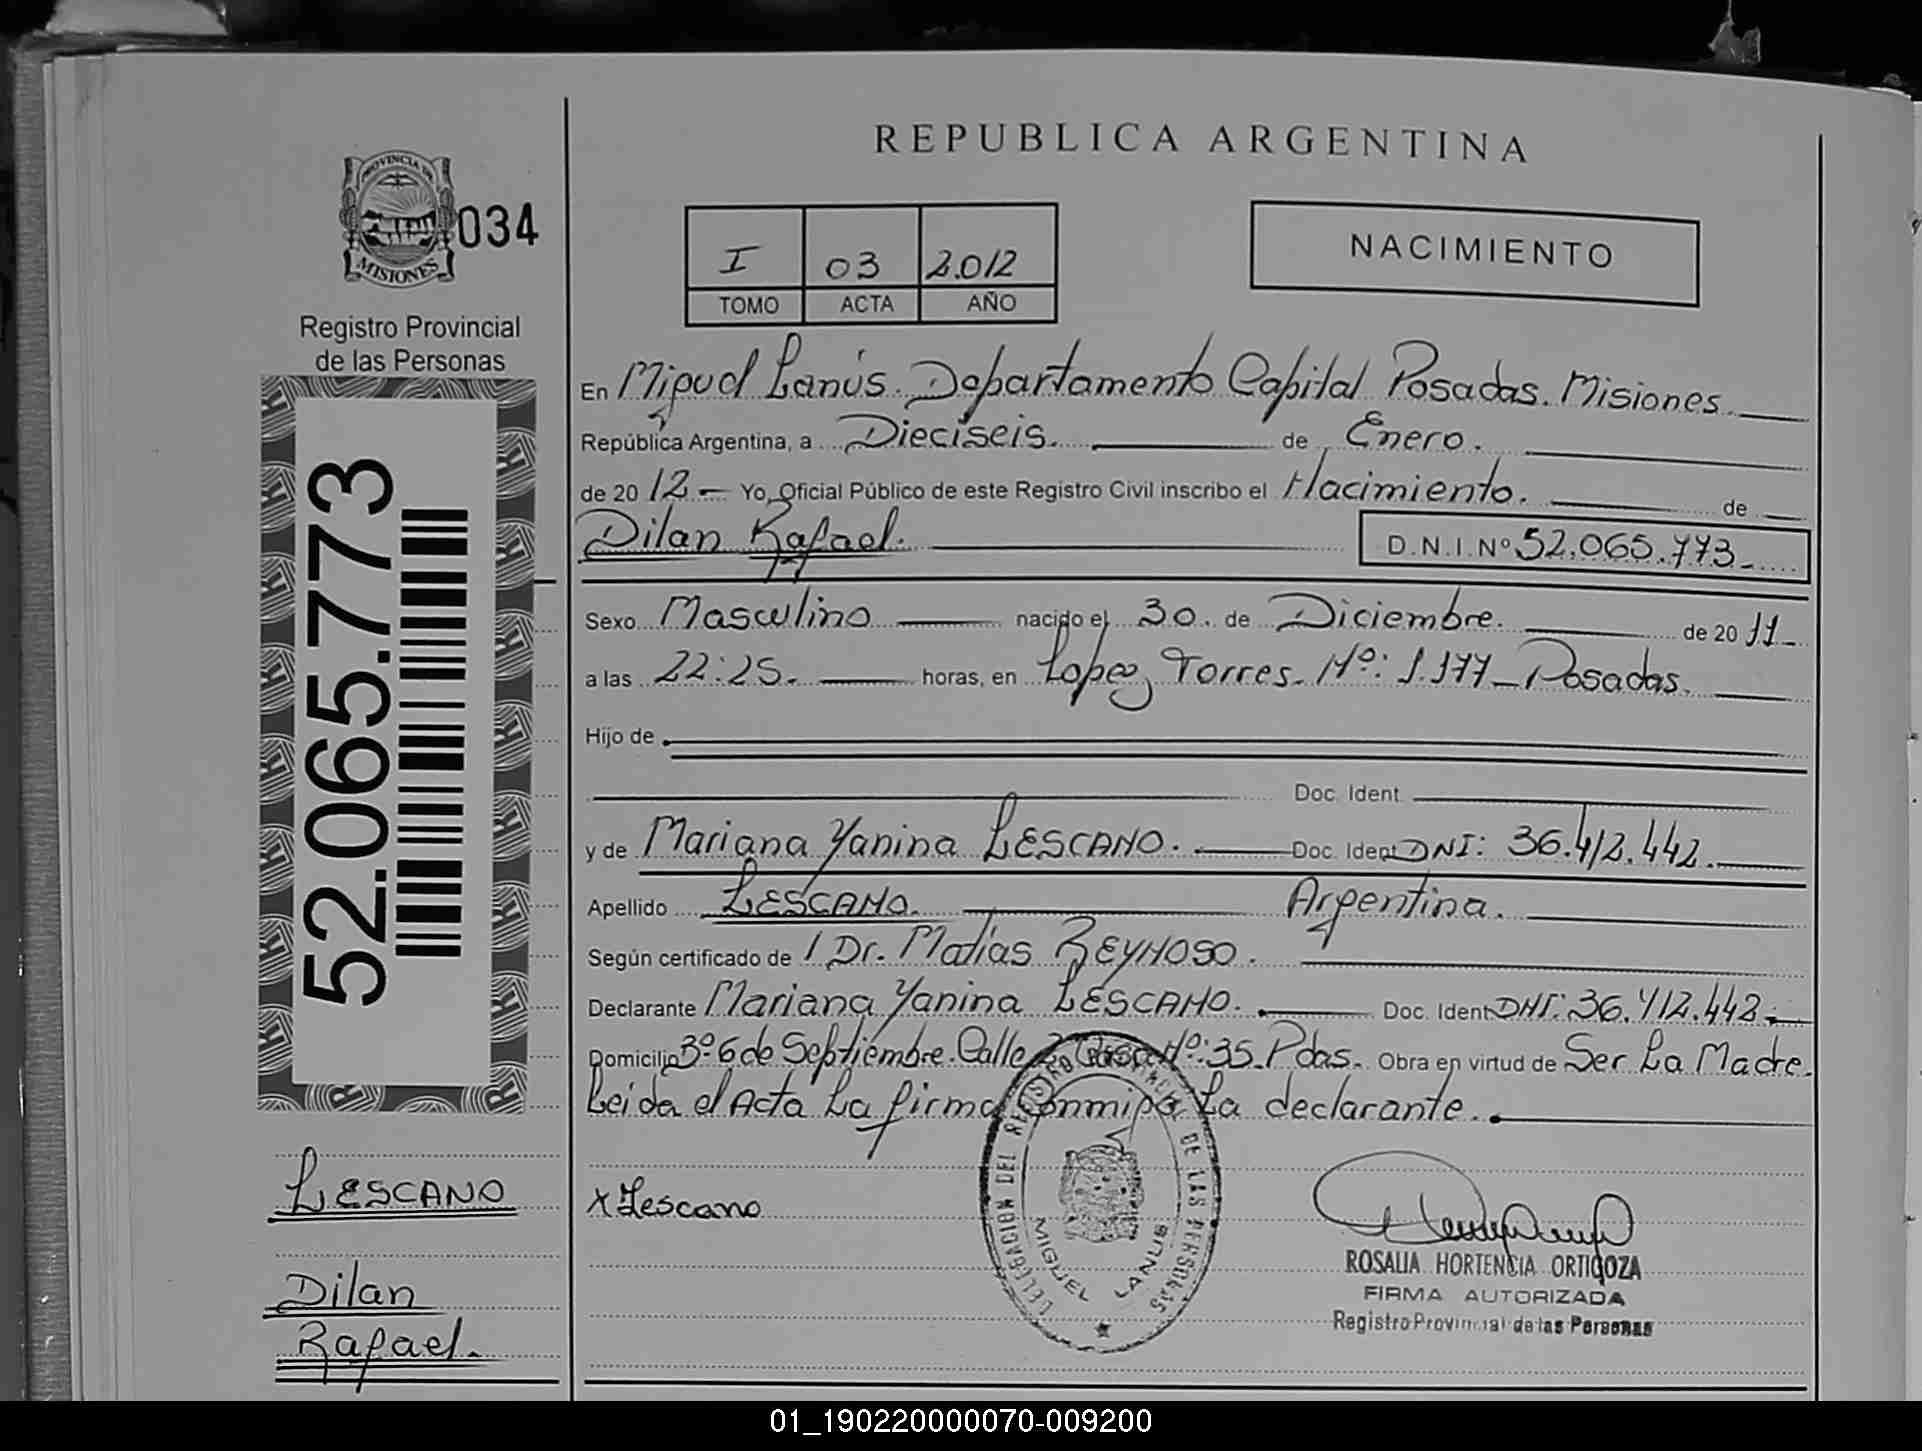 REPUBLICA ARGENTINA
PROVINCIA DE
MISIONES
034
Registro Provincial
de las Personas
I 03 2.012
TOMO ACTA AÑO
NACIMIENTO
En Miguel Lanús. Departamento Capital Posadas. Misiones.
República Argentina, a Dieciseis. de Enero.
de 20 12 - Yo, Oficial Público de este Registro Civil inscribo el Nacimiento. de
Dilan Rafael. D.N.I. Nº 52.065.773-
52.065.773
Sexo Masculino nacido el 30. de Diciembre. de 20 11-
a las 22:25. horas, en Lopez Torres. Nº: 1.177 - Posadas.
Hijo de
Doc. Ident.
y de Mariana Yanina LESCANO. Doc. Ident DNI: 36.412.442.
Apellido LESCANO. Argentina.
Según certificado de / Dr. Matías REYNOSO.
Declarante Mariana Yanina LESCANO. Doc. Ident DNI: 36.412.442-
Domicilio Bº 6 de Septiembre. Calle 2 Casa Nº: 35. Pdas. Obra en virtud de Ser La Madre.
Leida el Acta La firma Conmigo La declarante.
LESCANO
Dilan
Rafael.
x Lescano
DELEGACION DEL REGISTRO PROVINCIAL DE LAS PERSONAS
MIGUEL LANUS
ROSALIA HORTENCIA ORTIGOZA
FIRMA AUTORIZADA
Registro Provincial de las Personas
01_190220000070-009200